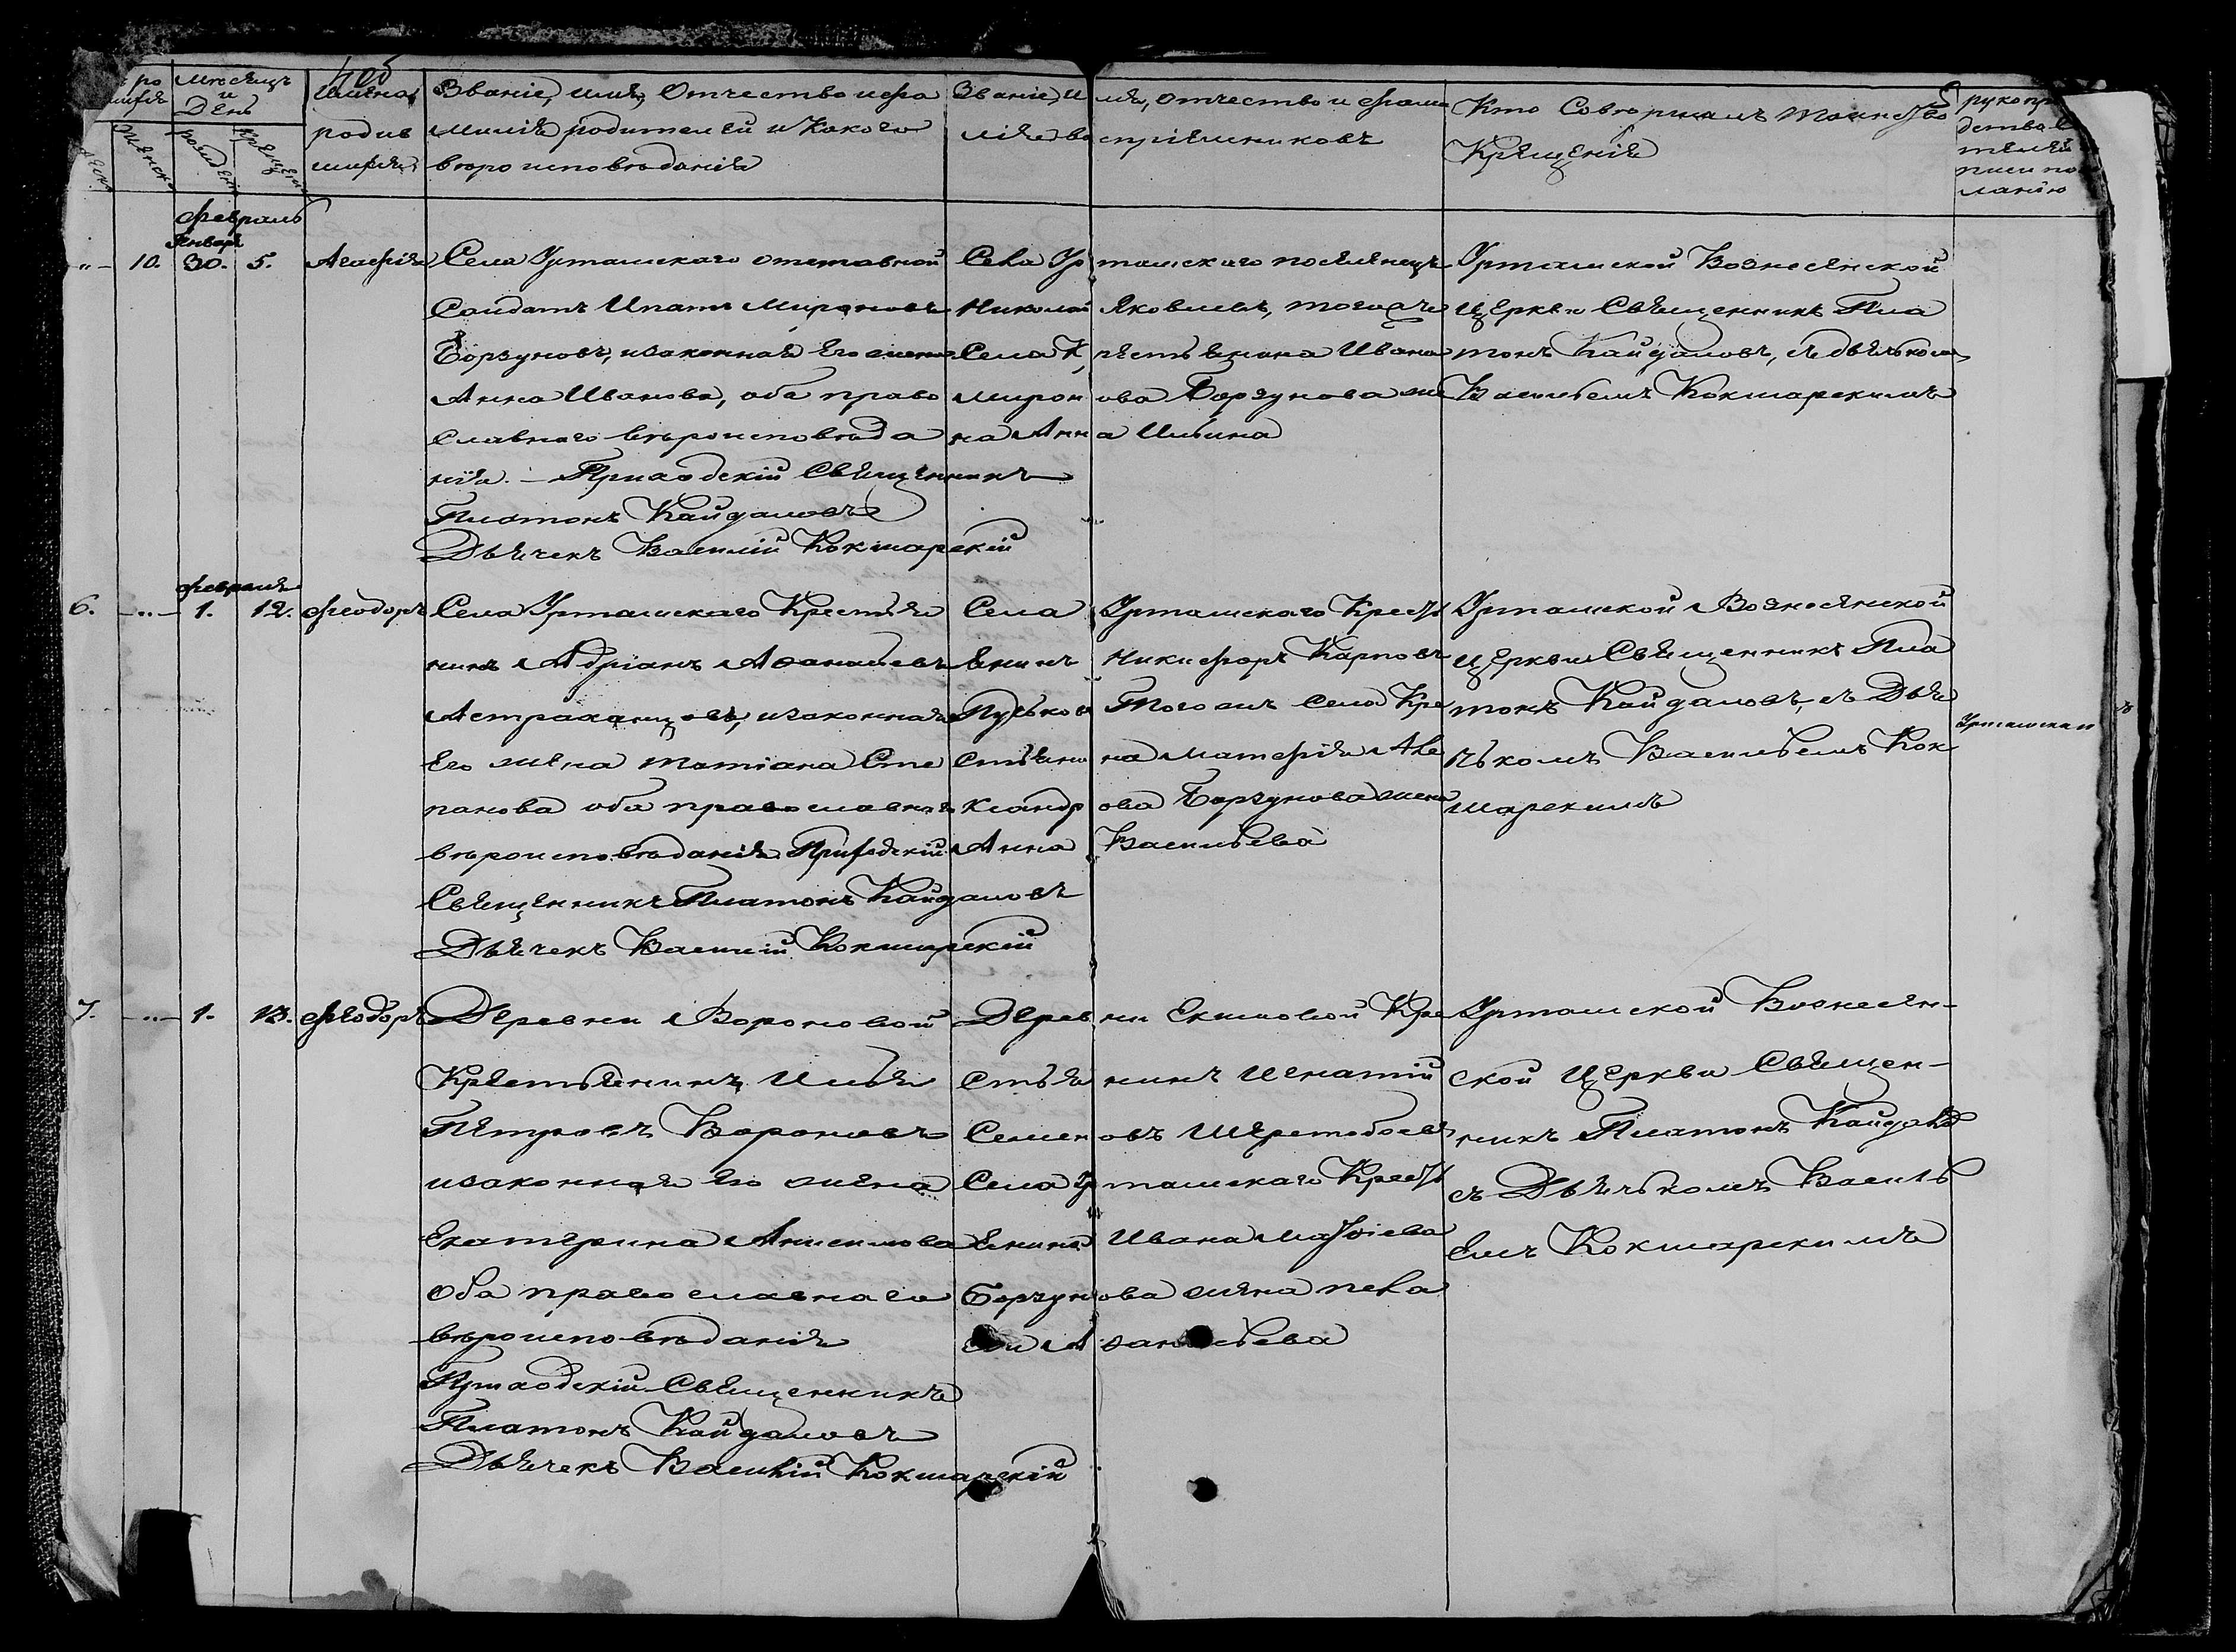 Мѣсяцъ
и
День
Имена
родив
шихся
Званіе, имя, Отчество и фа
милія родителей и Какого
вѣроисповѣданія
Званіе, имя, отчество и фами
лія воспріемниковъ
Кто Совершалъ таинство
Крещенія
рукопр
детелей
писи по
ланію
Февраль
Январь
10. 30. 5. Агафія
Села Урташскаго отставной
Солдатъ Ипатъ Мироновъ
Борзуновъ, изаконная Его жена
Анна Иванова, оба право
славнаго вѣроисповѣда
нія. – Приходскій Священникъ
Платонъ Кайдаловъ
Дьячекъ Василій Кокшарскій
Села Урташскаго поселенецъ
Николай Яковлевъ, тогожъ
Села Крестьянина Ивана
Миронова Борзунова же
на Анна Ильина
Урташской Вознесенской
Церкви Священникъ Пла
тонъ Кайдаловъ, съ дьячкомъ
Васильемъ Кокшарскимъ
Февраля
6. 1. 12. Феодоръ
Села Урташскаго Крестья
нинъ Адріанъ Аѳанасьевъ
Астраханцовъ, изаконная
Его жена Татіана Сте
панова оба православнаго
вѣроисповѣданія Приходскій
Священникъ Платонъ Кайдаловъ
Дьячекъ Василій Кокшарскій
Села Урташскаго Кресть
янинъ Никифоръ Карповъ
Пуськовъ Того жъ Села Кре
стьяни на Але
ксандрова Борзунова жена
Анна Васильева
Урташской Вознесенской
Церкви Священникъ Пла
тонъ Кайдаловъ, съ Дья
чькомъ Васильемъ Кок
шарскимъ
7. 1. 13. Феодоръ
Деревни Вороновой
Крестьянинъ Илья
Петровъ Вороновъ
изаконная Его жена
Екатерина Анисимова
Оба православнаго
вѣроисповѣданія
Приходскій Священникъ
Платонъ Кайдаловъ
Дьячекъ Василій Кокшарскій
Деревни Екимовой Кре
стьянинъ Игнатій
Семеновъ Шерстобоевъ
Села Урташскаго Кресть
янина Ивана
Борзунова жена Пела
Урташской Вознесен-
ской Церкви Священ-
никъ Платонъ Кайдаловъ
съ Дьячькомъ Василь
емъ Кокшарскимъ